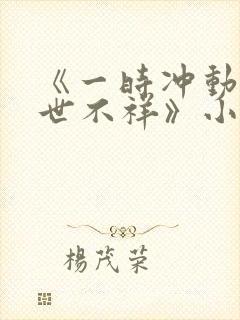 《一時冲動
世不祥》小
楊茂荣